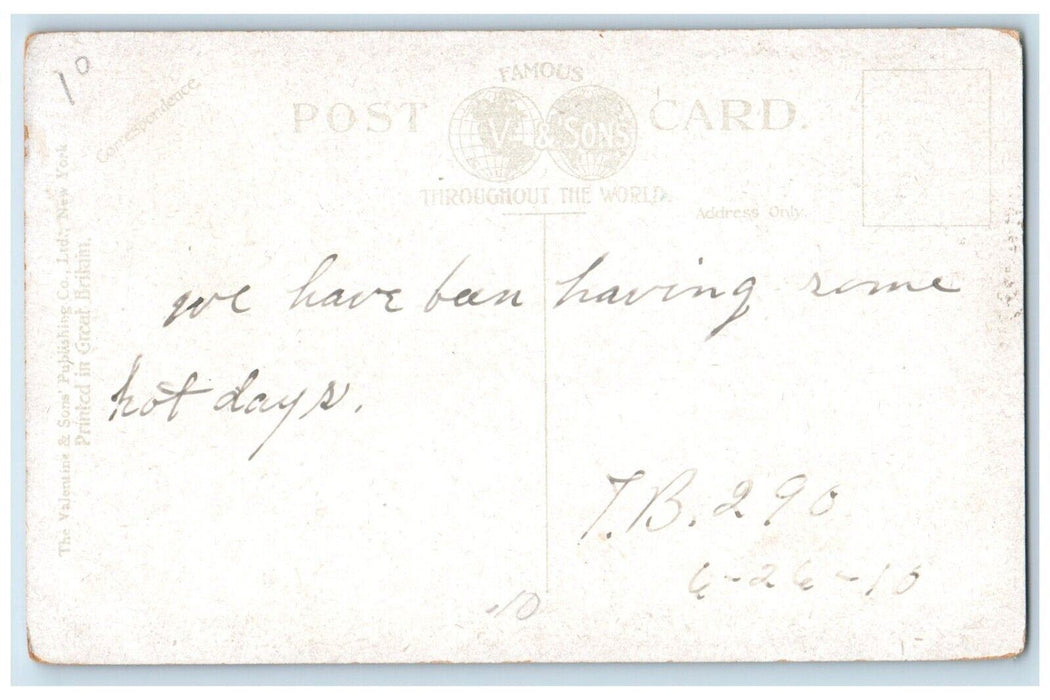 10
Correspondence.
FAMOUS
POST CARD.
V. & SONS
THROUGHOUT THE WORLD.
Address Only.
The Valentine & Sons' Publishing Co., Ltd., New York
Printed in Great Britain.
we have been having some
hot days.
T.B. 290
6-26-10
10